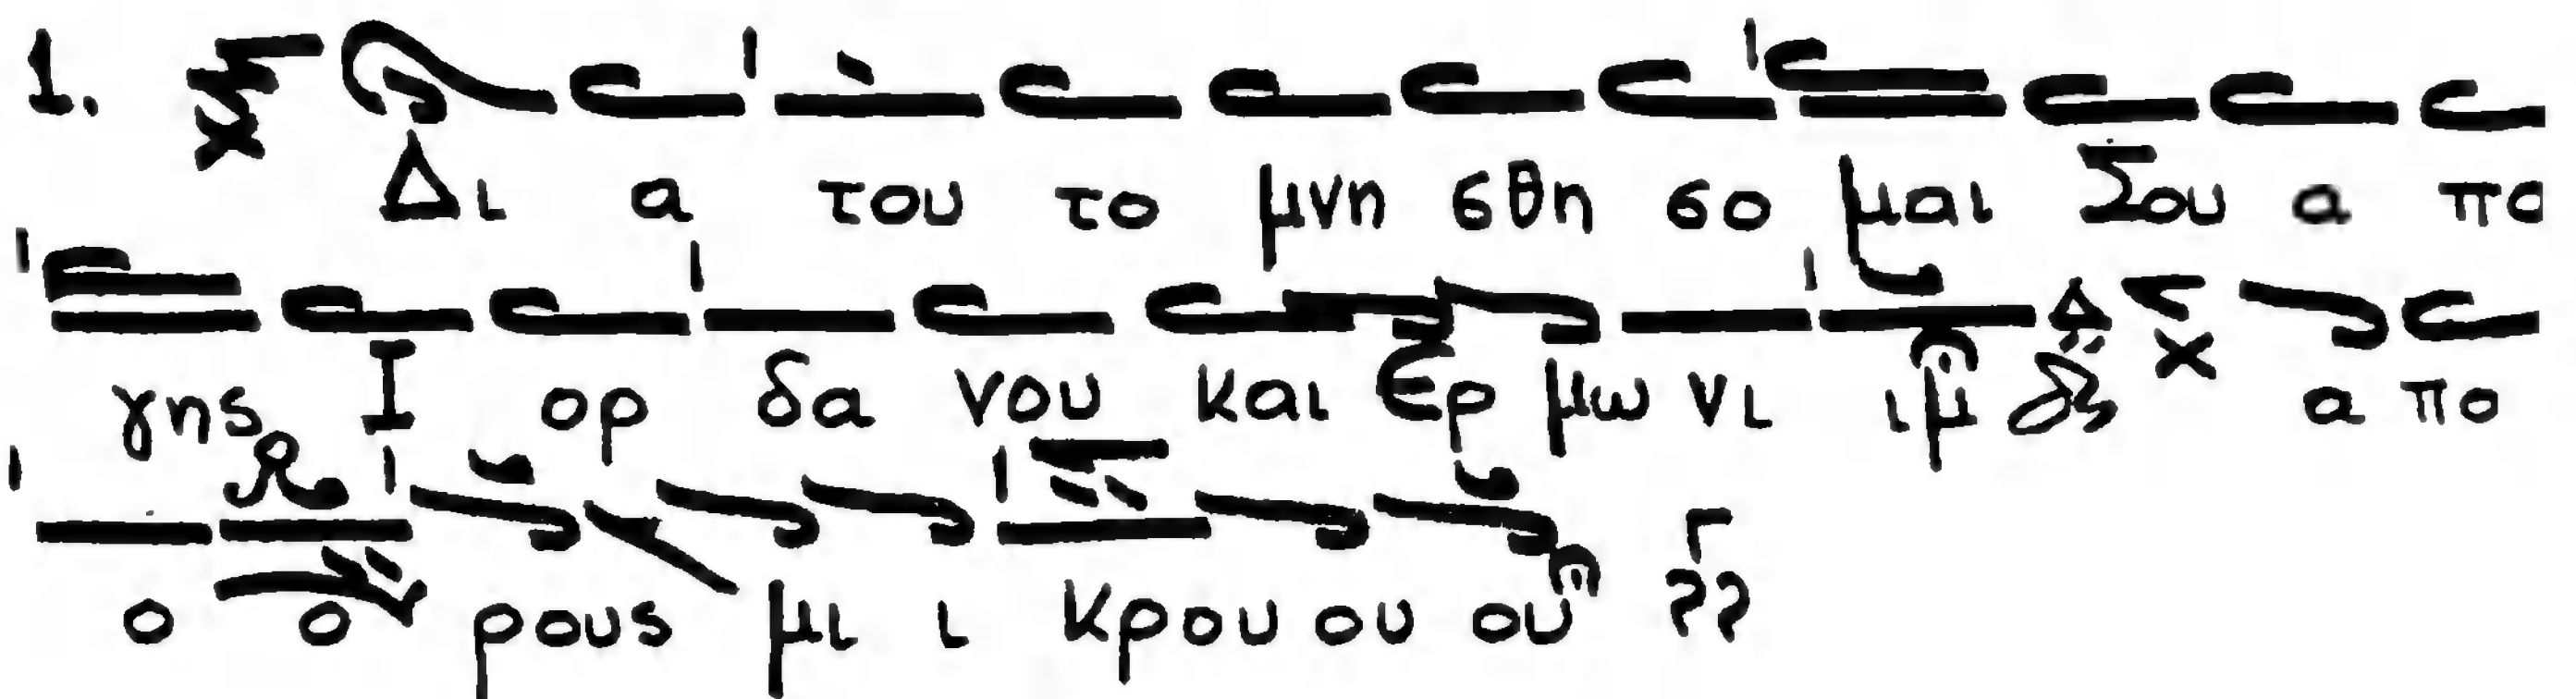 1. Δι α του το μνη σθη σο μαι Σου α πο
γης Ι ορ δα νου και Ερ μω νι ιμ α πο
ο ο ρους μι ι κρου ου ου